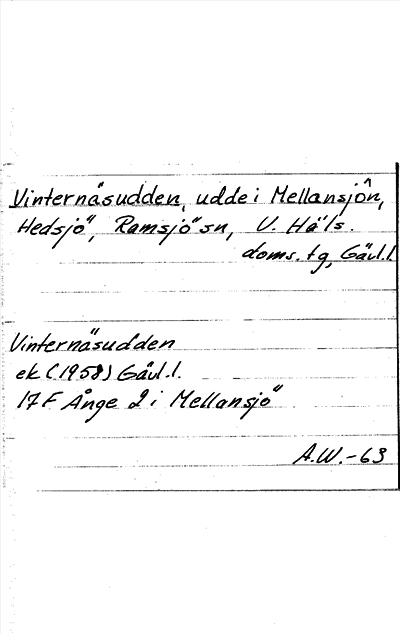 Vinternäsudden, udde i Mellansjön,
Hedsjö, Ramsjö sn, V. Häls.
doms. tg, Gävl.l
Vinternäsudden
ek (1958) Gävl.l.
17 F Ånge 2 i Mellansjö
A.W.-63